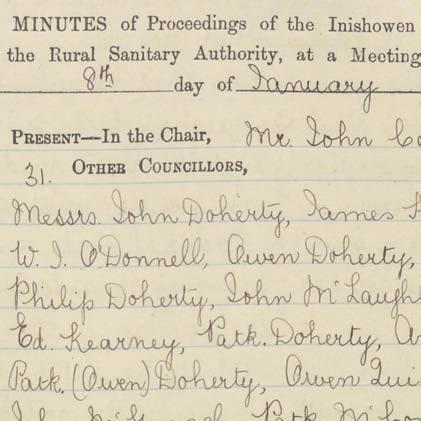 MINUTES of Proceedings of the Inishowen
the Rural Sanitary Authority, at a Meeting
8th day of January
PRESENT—In the Chair, Mr. John
31. OTHER COUNCILLORS,
Messrs. John Doherty, James
W. J. O'Donnell, Owen Doherty,
Philip Doherty, John McLaugh
Ed. Kearney, Patk. Doherty,
Patk. (Owen) Doherty, Owen Qui